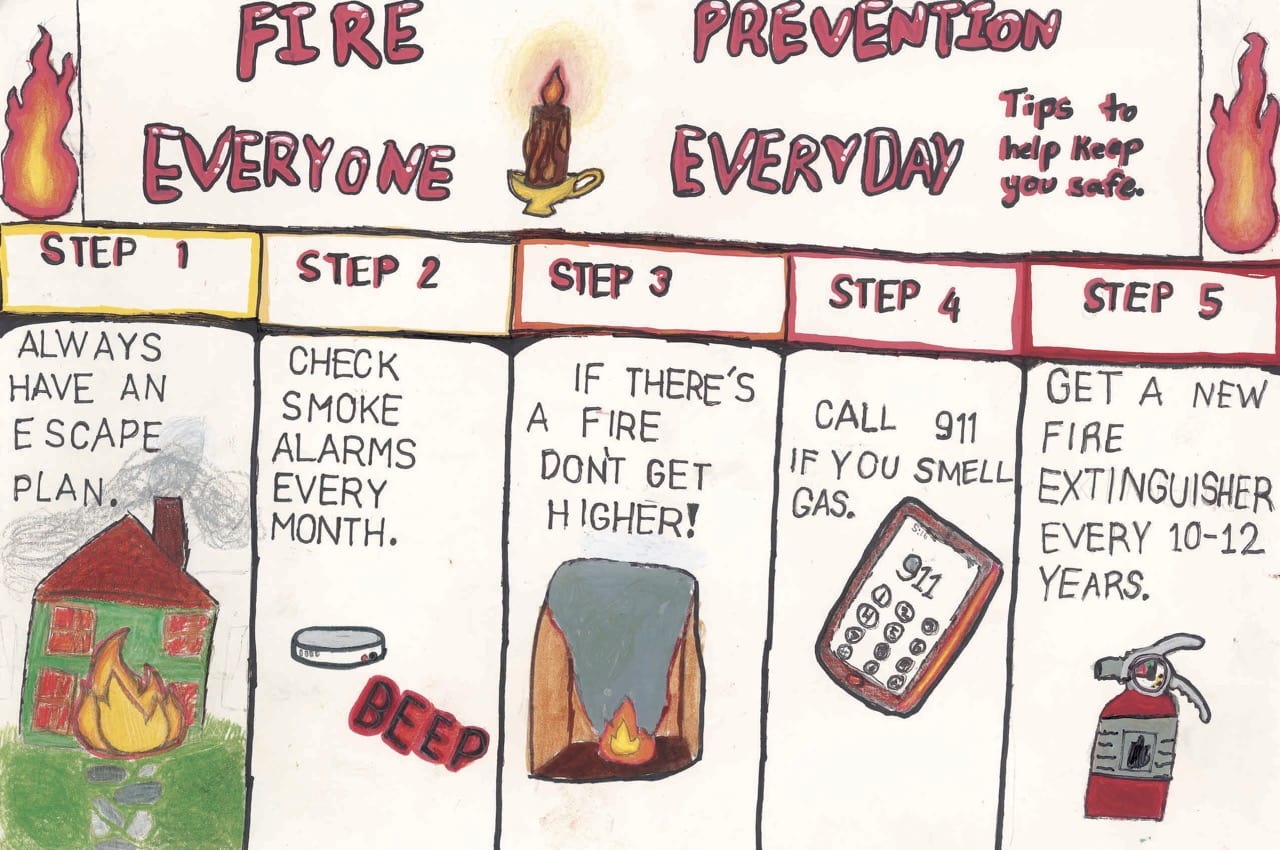 FIRE PREVENTION
EVERYONE EVERYDAY
Tips to
help keep
you safe.
STEP 1
ALWAYS
HAVE AN
ESCAPE
PLAN.
STEP 2
CHECK
SMOKE
ALARMS
EVERY
MONTH.
BEEP
STEP 3
IF THERE'S
A FIRE
DON'T GET
HIGHER!
STEP 4
CALL 911
IF YOU SMELL
GAS.
911
STEP 5
GET A NEW
FIRE
EXTINGUISHER
EVERY 10-12
YEARS.